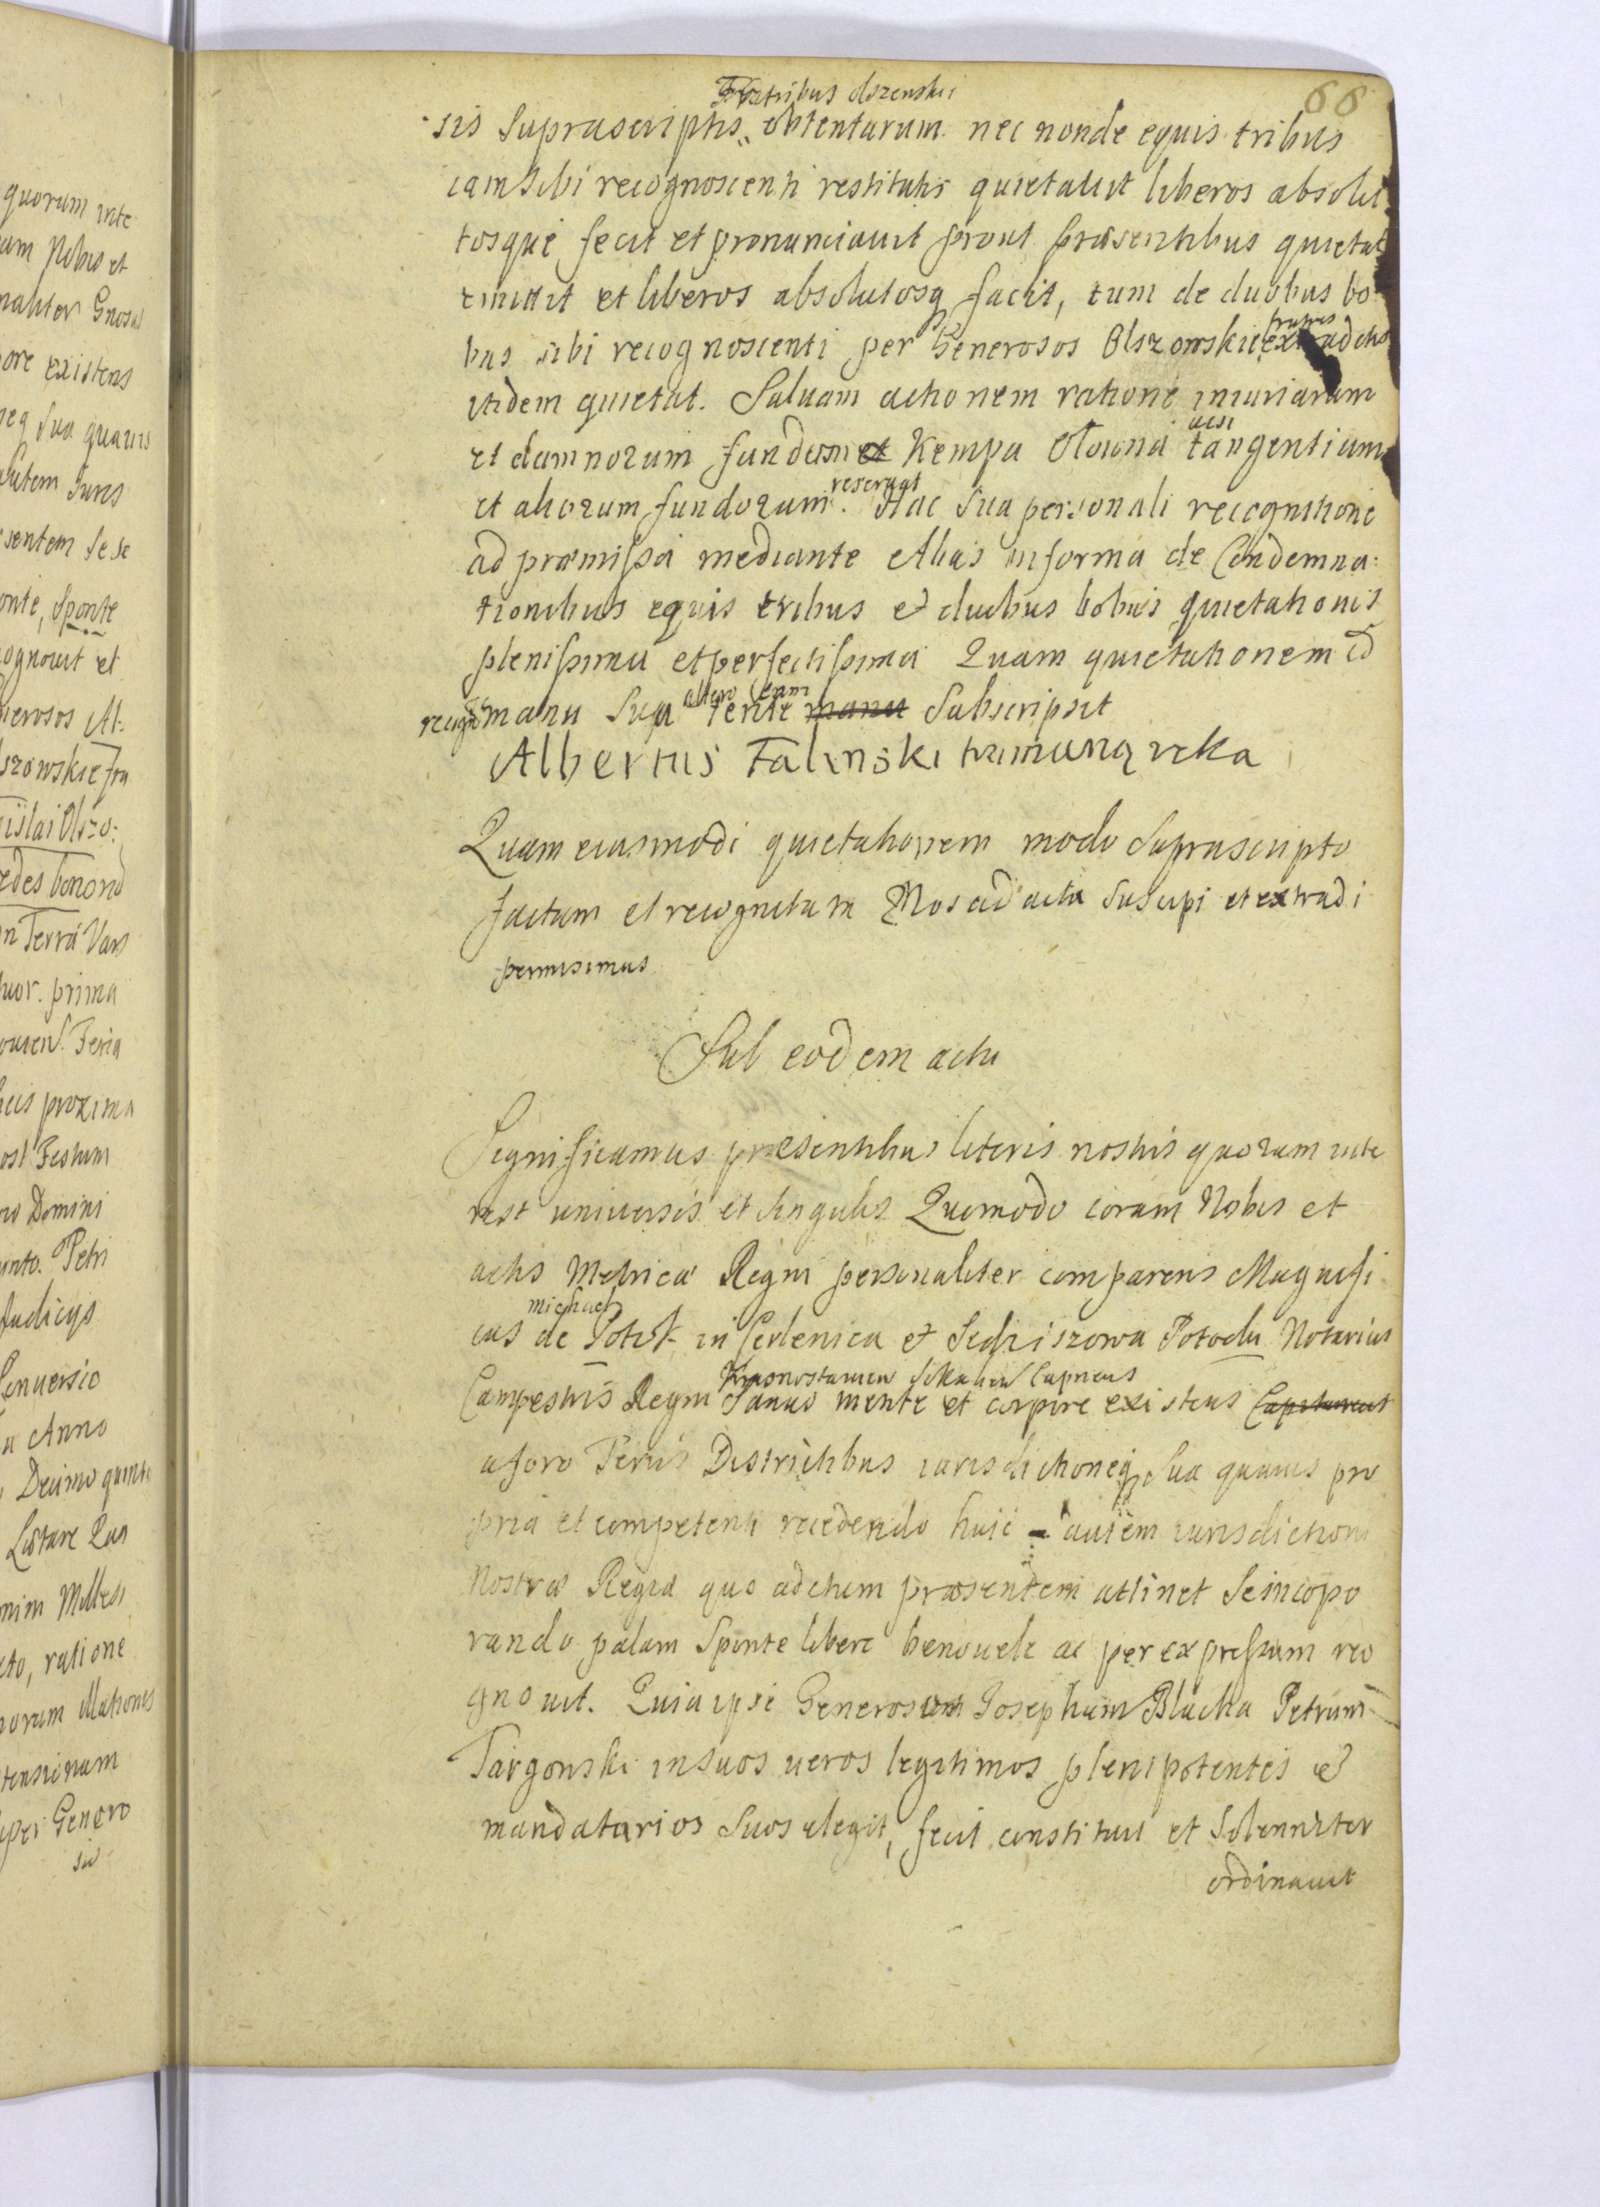 quorum inte
am Nobis et
naliter Gnosus
ore existens
neq sua quavis
autem Juris
sentem se se
onte, sponte
ognovit et
nerosos Al-
lszowskie fra
islai Olszo:
edes bonoru
in Terra Vars
prima
Feria
proxima
ost Festum
Domini
Petri
Judicys
Conuersio
Anno
Decimo quinto
Lætare Qua
Milles
cto, ratione
tensionum
per Genero
sis
66
Fratribus olszenskii
sis suprascriptis obtentarum nec non de equis tribus
iam sibi recognoscenti restitutis quietauit liberos absolu
tosque fecit et pronunciauit prout præsentibus quietat
et liberos absolutosq facit, tum de duobus bo
fratres
bus sibi recognoscenti per Generosos Olszowskie ex adctis
itidem quietat. Saluam actionem ratione iniuriarum
et damnorum fundum et Kempa Olowna tangentium
reseruat
et aliorum fundorum. Hac sua personali recognitione
ad præmissa mediante Alias in forma de Condemna:
tionibus equis tribus et duobus bobus quietationis
plenissima et perfectissima Quam quietationem id
recogn manu sua tente manu subscripsit
Albertus Falinski trzimaną reka
Quam eiusmodi quietationem modo supra scripto
factam et recognitam Nos ad acta suscipi et extradi
permisimus
Sub eodem actu
Significamus præsentibus literis nostris quorum inte
rest universis et singulis Quomodo coram Nobis et
actis Metricæ Regni personaliter comparens Magnifi
michael
cus de Potok in Cerlenica et Sedziszowa Potocki Notarius
Krasnostauien Capneus
Campestris Regni Sanus mente et corpore existens Capitaneus
a foro Terris Districtibus iurisdictioneq sua quauis pro
pria et competenti recedendo huic autem iurisdictioni
Nostræ Regiæ quo ad actum præsentem attinet se incopo
rando palam sponte libere beneuole ac per expressum reco
gnouit. Quia ipse Generosum Josephum Blacha Petrum
Targonski in suos ueros legitimos plenipotentes et
mandatarios suos elegit, fecit constituit et solenniter
ordinauit